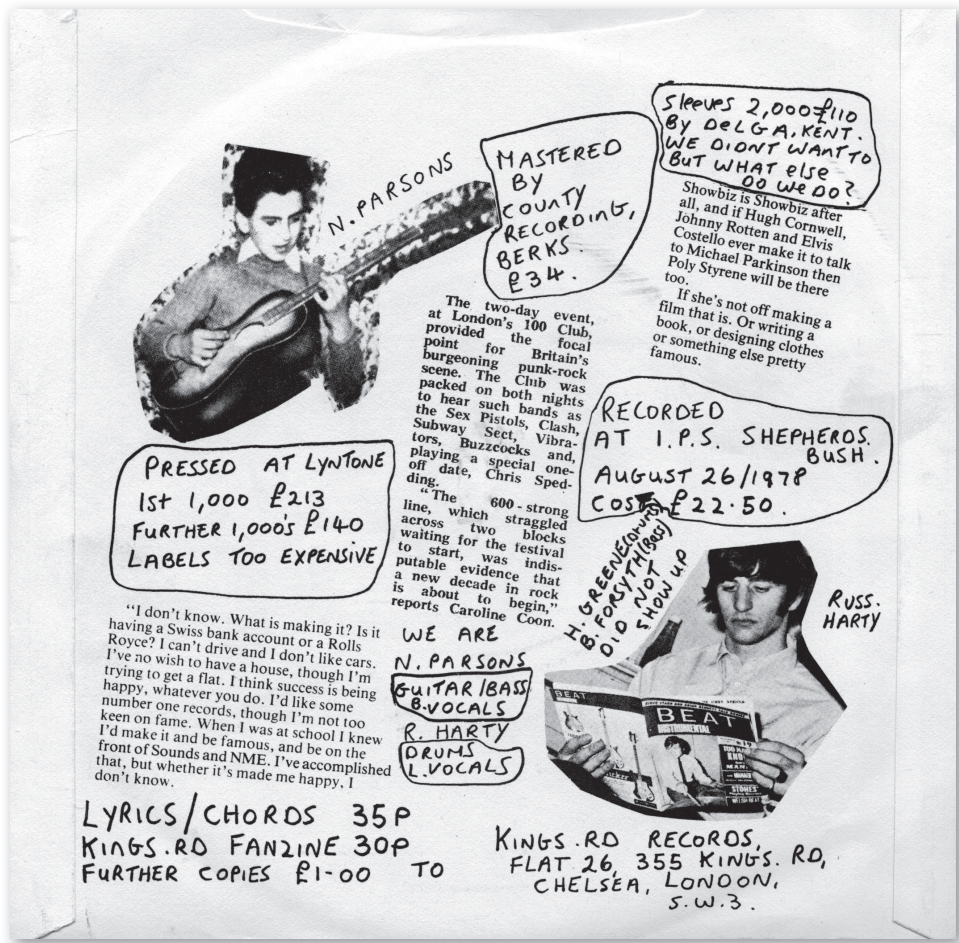 Sleeves 2,000 £110
BY DELGA, KENT.
WE DIDNT WANT TO
BUT WHAT else
DO WE DO?
Showbiz is Showbiz after
all, and if Hugh Cornwell,
Johnny Rotten and Elvis
Costello ever make it to talk
to Michael Parkinson then
Poly Styrene will be there
too.
If she's not off making a
film that is. Or writing a
book, or designing clothes
or something else pretty
famous.
N. PARSONS
MASTERED
BY
COUNTY
RECORDING,
BERKS.
£34.
The two-day event,
at London's 100 Club,
provided the focal
point for Britain's
burgeoning punk-rock
scene. The Club was
packed on both nights
to hear such bands as
the Sex Pistols, Clash,
Subway Sect, Vibra-
tors, Buzzcocks and,
playing a special one-
off date, Chris Sped-
ding.
"The 600-strong
line, which straggled
across two blocks
waiting for the festival
to start, was indis-
putable evidence that
a new decade in rock
is about to begin,"
reports Caroline Coon.
RECORDED
AT I.P.S. SHEPHERDS.
BUSH.
AUGUST 26/1978
COST £22.50.
PRESSED AT LYNTONE
1st 1,000 £213
FURTHER 1,000's £140
LABELS TOO EXPENSIVE
H. GREENE
B. FORSYTH (BASS)
DID NOT
SHOW UP
RUSS.
HARTY
BEAT
BEAT
INSTRUMENTAL
STONES'
"I don't know. What is making it? Is it
having a Swiss bank account or a Rolls
Royce? I can't drive and I don't like cars.
I've no wish to have a house, though I'm
trying to get a flat. I think success is being
happy, whatever you do. I'd like some
number one records, though I'm not too
keen on fame. When I was at school I knew
I'd make it and be famous, and be on the
front of Sounds and NME. I've accomplished
that, but whether it's made me happy, I
don't know.
WE ARE
N. PARSONS
GUITAR/BASS
B.VOCALS
R. HARTY
DRUMS
L.VOCALS
LYRICS/CHORDS 35P
KINGS.RD FANZINE 30P
FURTHER COPIES £1-00 TO
KINGS.RD RECORDS,
FLAT 26, 355 KINGS. RD,
CHELSEA, LONDON,
S.W.3.